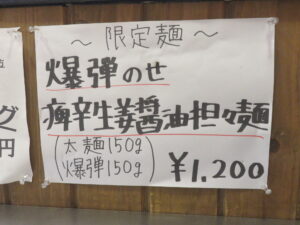 〜限定麺〜
爆弾のせ
痺辛生姜醤油担々麺
(太麺150g
爆弾150g)
¥1,200
グ
円